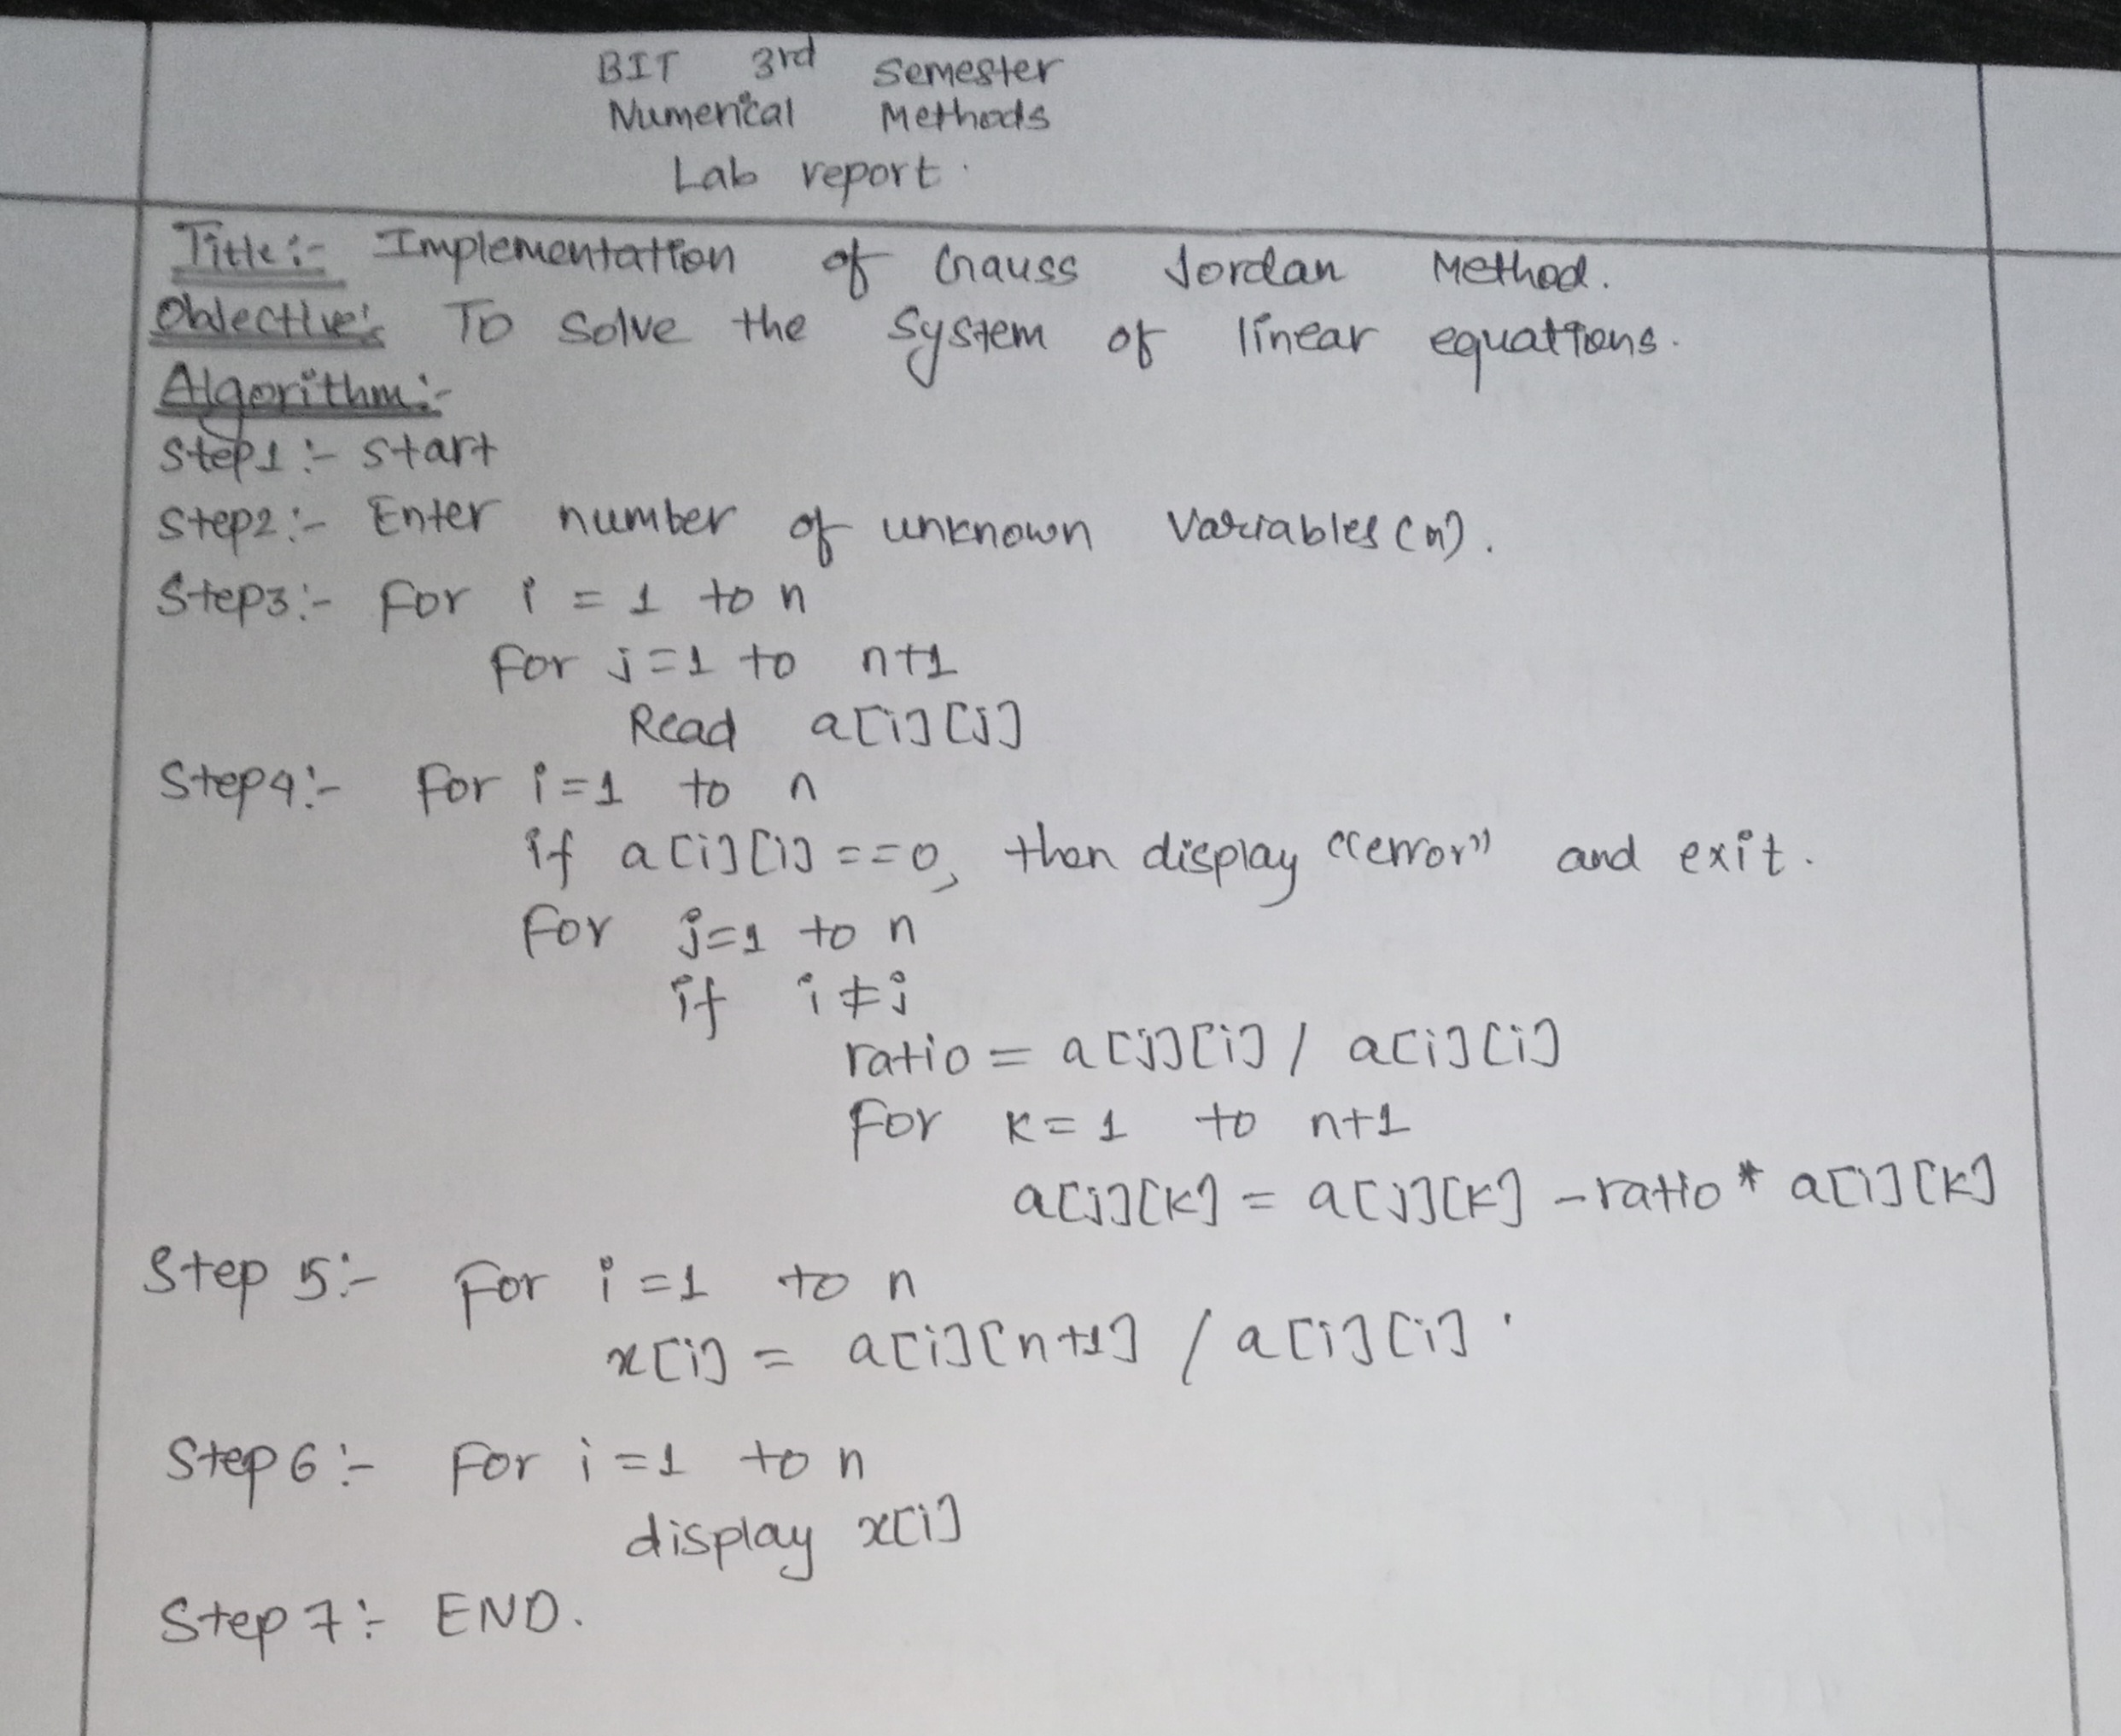 BIT 3rd Semester
Numerical Methods
Lab report.
Title:- Implementation of Gauss Jordan Method.
Objective:- To solve the system of linear equations.
Algorithm:-
Step1:- start
Step2:- Enter number of unknown variables (n).
Step3:- For i = 1 to n
For j=1 to n+1
Read a[i][j]
Step4:- For i=1 to n
if a[i][i]==0, then display "error" and exit.
For j=1 to n
if i≠j
ratio = a[j][i] / a[i][i]
For k=1 to n+1
a[j][k] = a[j][k] - ratio * a[i][k]
Step 5:- For i=1 to n
x[i] = a[i][n+1] / a[i][i].
Step 6:- For i=1 to n
display x[i]
Step 7:- END.